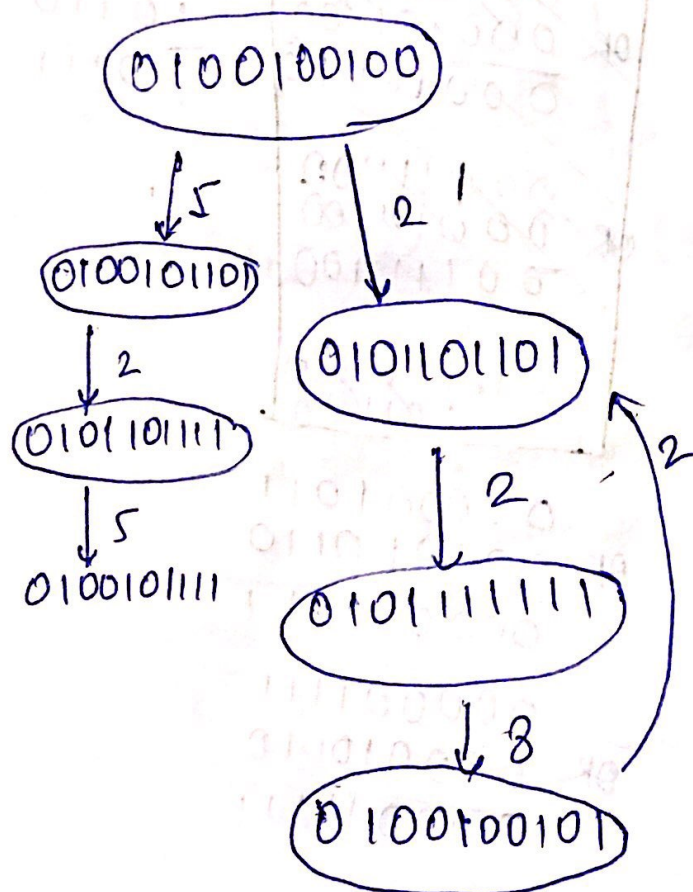 0100100100
5
2
0100101101
0101101101
2
0101101111
2
5
0100101111
0101111111
2
8
0100100101